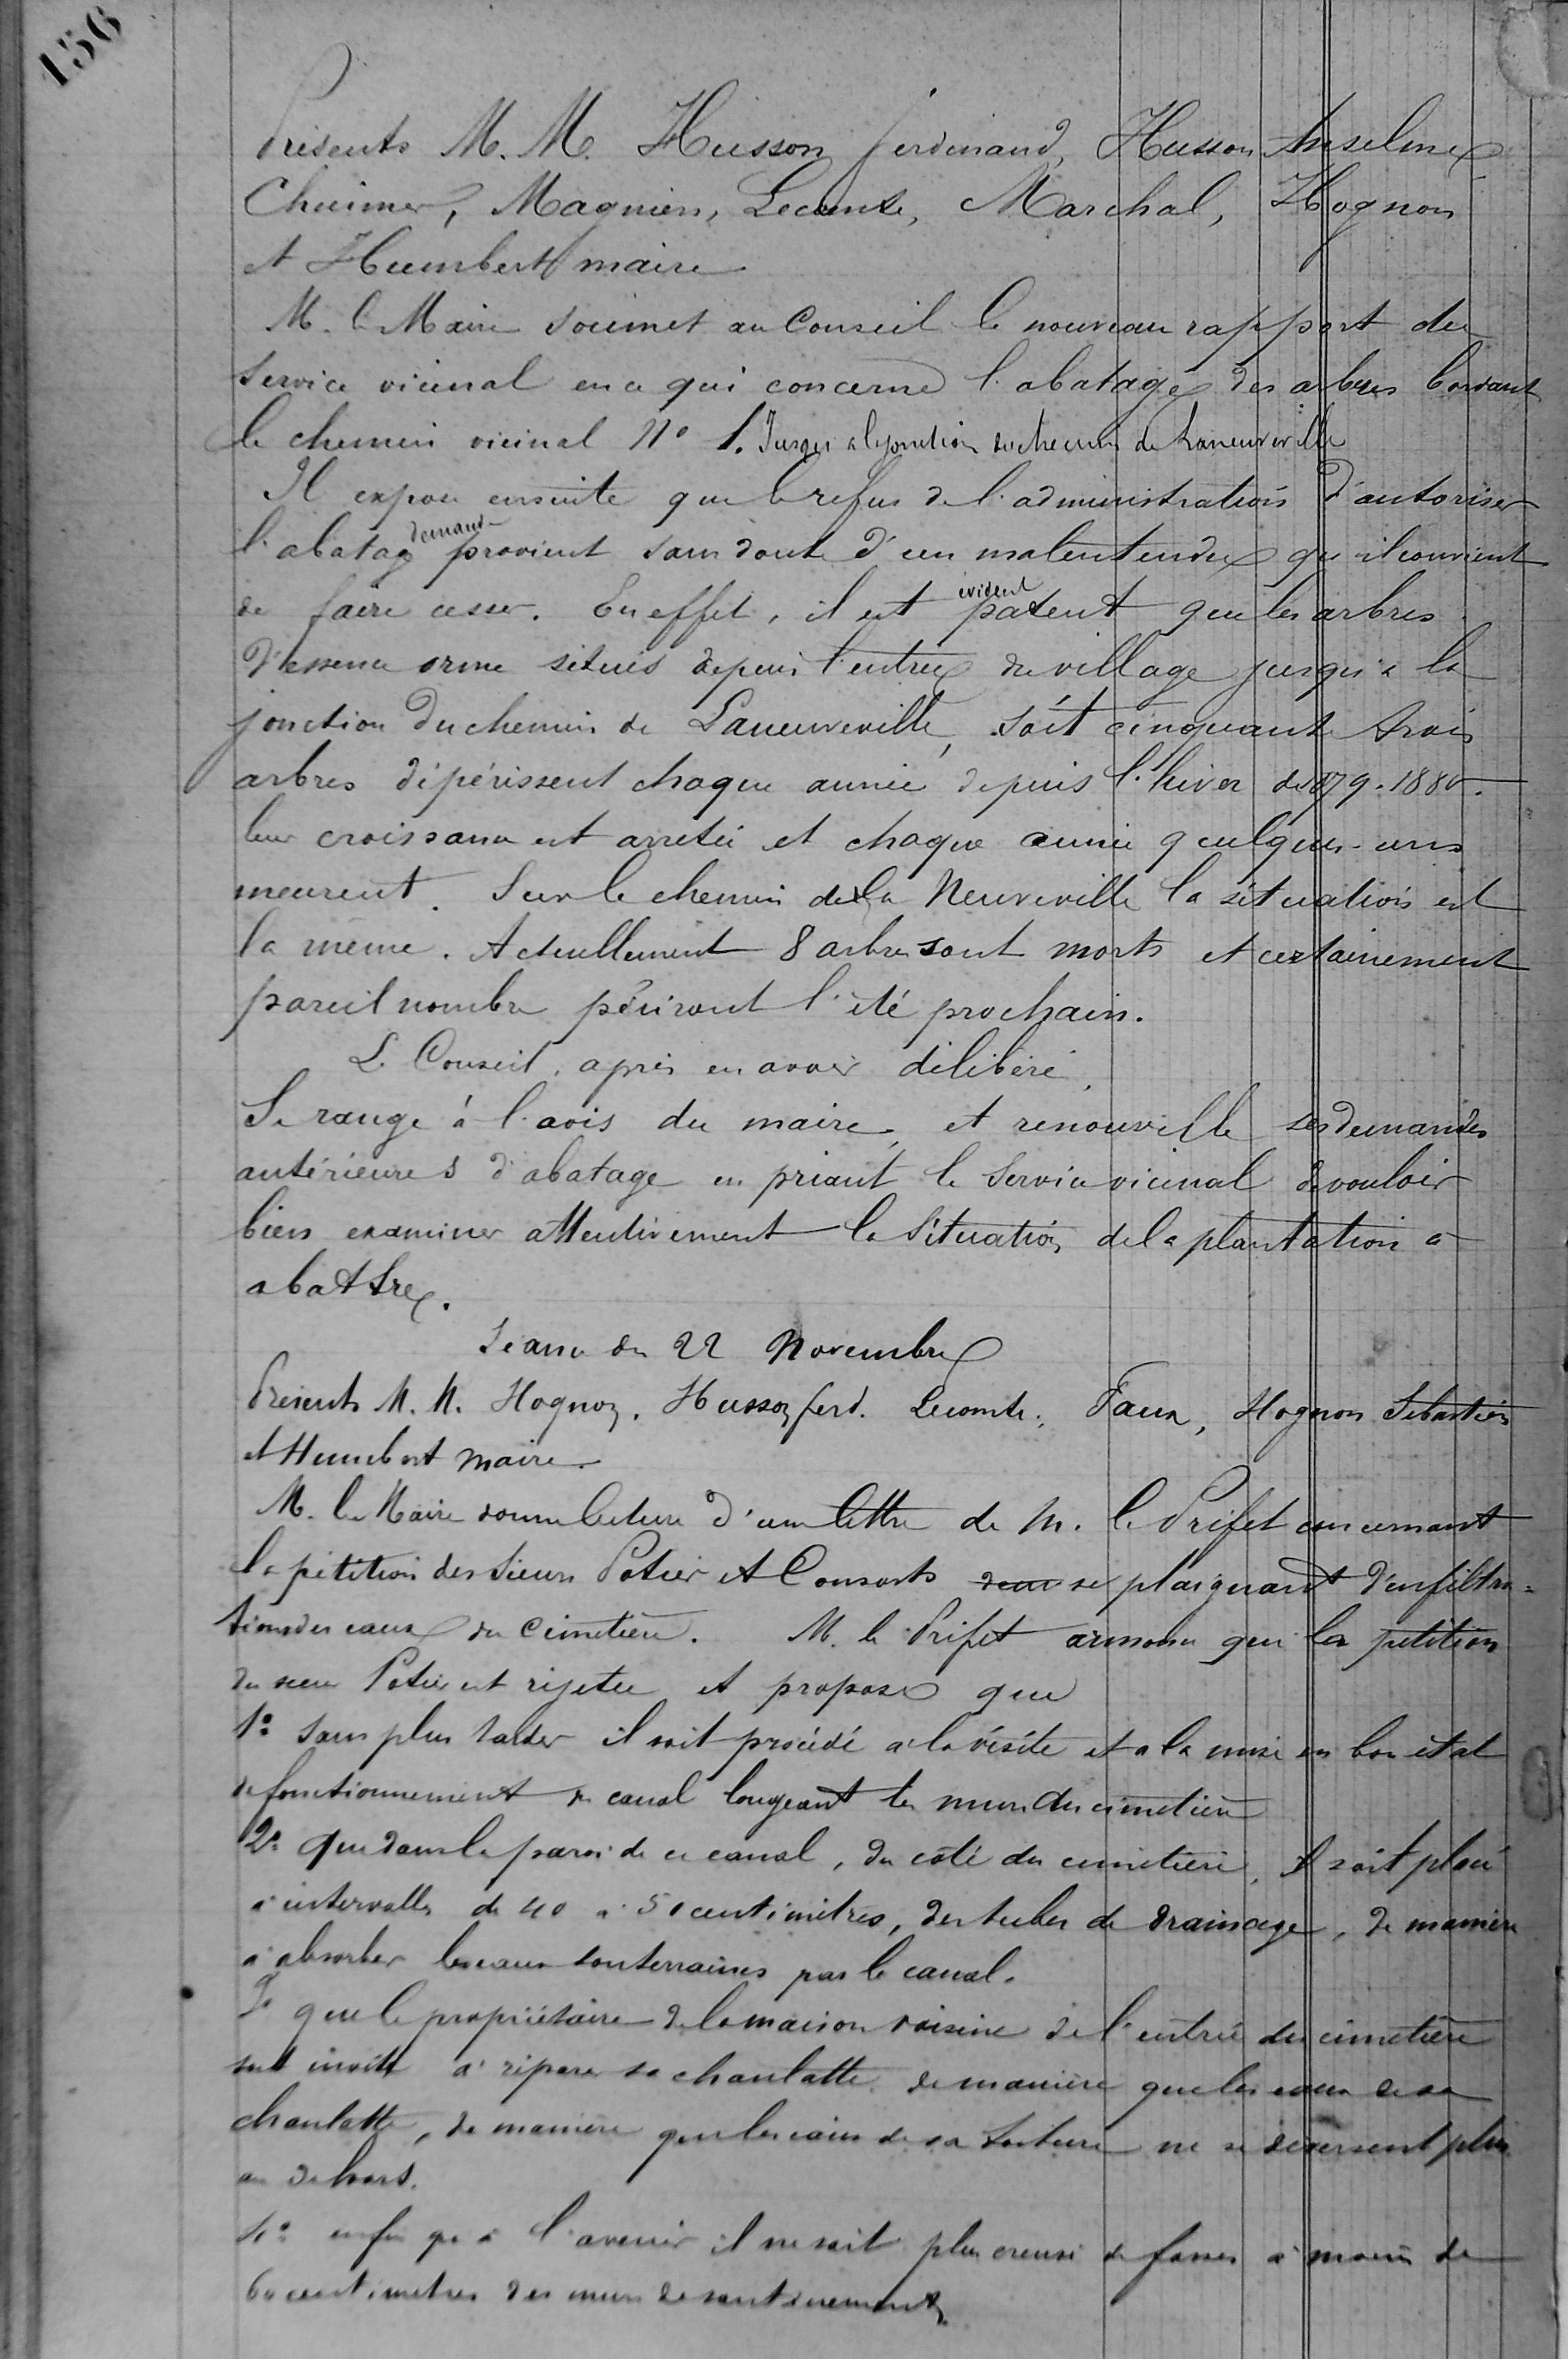 156
Présents M. M. Husson Ferdinand, Husson Anselme
Chuimer, Magnien, Lecomte, Marchal, Hognon
et Humbert maire
M. le Maire soumet au Conseil le nouveau rapport du
service vicinal en ce qui concerne l'abatage des arbres bordant
le chemin vicinal N° 1. Jusqu'à la jonction du chemin de Laneuveville
Il expose ensuite que le refus de l'administration d'autoriser
l'abatage demandé provient sans doute d'un malentendu qu'il convient
de faire cesser. En effet, il est patent évident que les arbres
d'essence orme situés depuis l'entrée du village jusqu'à la
jonction du chemin de Laneuveville, soit cinquante trois
arbres dépérissent chaque année depuis l'hiver de 1879-1880.
leur croissance est arretée et chaque année quelques-uns
meurent. Sur le chemin de la Neuveville la situation est
la même. Actuellement 8 arbres sont morts et certainement
pareil nombre périront l'été prochain.
Le Conseil, après en avoir délibéré,
Se range à l'avis du maire, et renouvelle ses demandes
antérieures d'abatage en priant le Service vicinal de vouloir
bien examiner attentivement la Situation de la plantation à
abattre.
Séance du 22 Novembre
Présents M. M. Hognon, Husson ferd. Lecomte, Faux, Hognon Sébastien
et Humbert maire
M. le Maire donne lecture d'une lettre de M. le Préfet concernant
la pétition des sieurs Potier et Consorts se plaignant d'infiltra-
tions des eaux du Cimetière. M. le Préfet annonce que la pétition
du sieur Potier est rejetée et propose que
1° sans plus tarder il soit procédé à la visite et à la mise en bon état
de fonctionnement du canal longeant les murs du cimetière
2° que dans la paroi de ce canal, du coté du cimetière, il soit placé
à intervalles de 40 à 50 centimètres, des tubes de drainage, de manière
à absorber les eaux souterraines par le canal.
3° que le propriétaire de la maison voisine de l'entrée du cimetière
soit invité à réparer sa chanlatte de manière que les eaux de sa
chanlatte, de manière que les eaux de sa toiture ne se déversent plus
au dehors.
4° enfin qu'à l'avenir il ne soit plus creusé de fosses à moins de
60 centimètres des murs de soutènement.